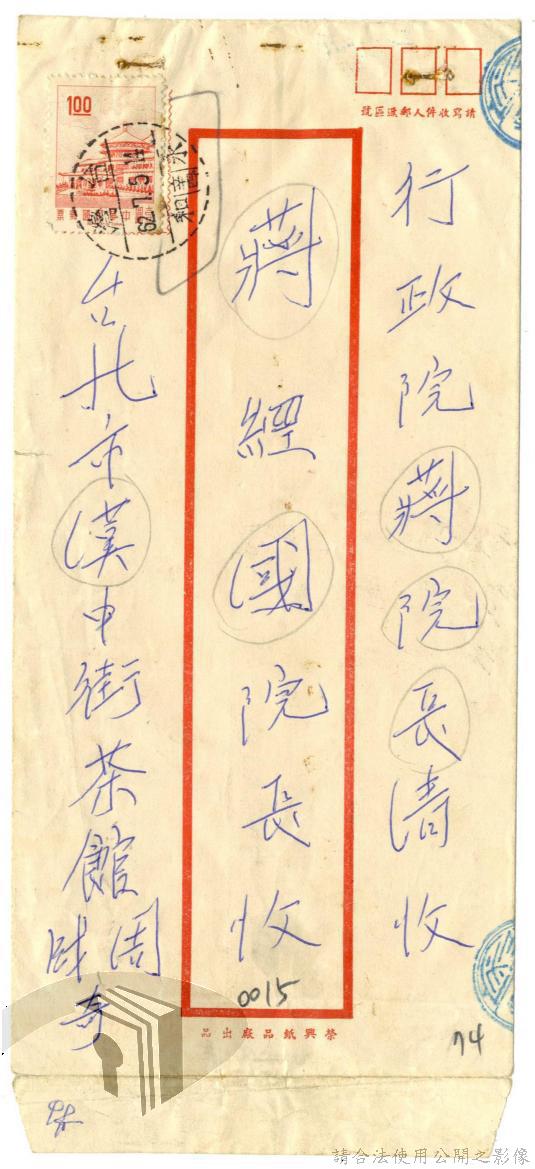 請寫收件人郵遞區號
行政院蔣院長請收
蔣經國院長收
0015
榮興紙品廠出品
1.00
台灣
62.7.5.14
永和
台北市漢中街茶館
周財奇
74
請合法使用公開之影像